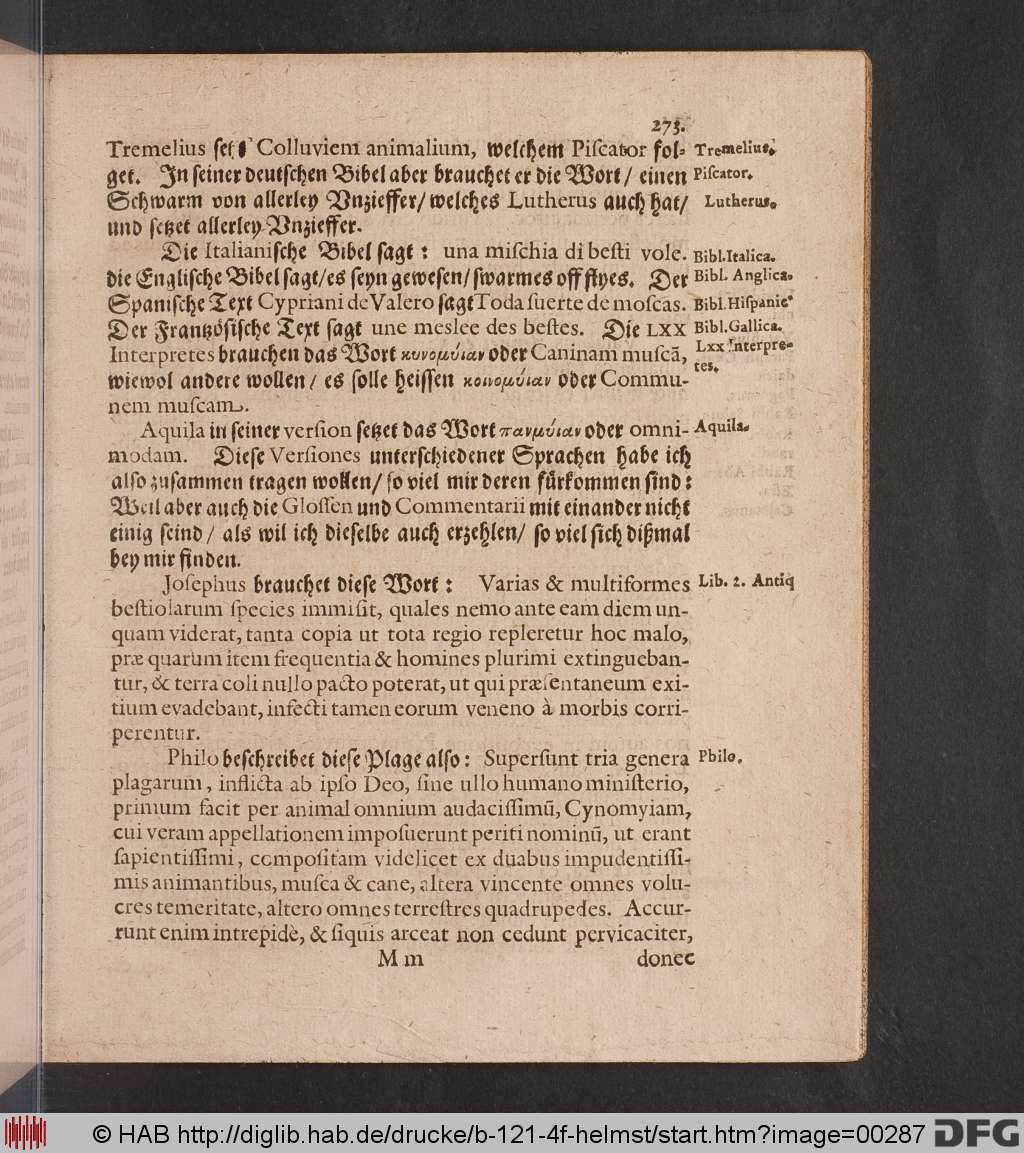 273.
Tremelius setzt Colluviem animalium, welchem Piſcator fol- Tremelius.
get. In ſeiner deutſchen Bibel aber brauchet er die Wort / einen Piſcator.
Schwarm von allerley Vnzieffer / welches Lutherus auch hat / Lutherus.
und ſetzet allerley Vnzieffer.
Die Italianiſche Bibel ſagt : una miſchia di beſti vole. Bibl. Italica.
die Engliſche Bibel ſagt / es ſeyn geweſen / ſwarmes off flyes. Der Bibl. Anglica.
Spaniſche Text Cypriani de Valero ſagt Toda ſuerte de moſcas. Bibl. Hiſpanic.
Der Frantzöſiſche Text ſagt une meslee des beſtes. Die LXX Bibl. Gallica.
Interpretes brauchen das Wort κυνομύιαν oder Caninam muſcã, Lxx Interpre-
tes.
wiewol andere wollen / es ſolle heiſſen κοινομύιαν oder Commu-
nem muſcam.
Aquila in ſeiner verſion ſetzet das Wort πανμύιαν oder omni- Aquila.
modam. Dieſe Verſiones unterſchiedener Sprachen habe ich
alſo zuſammen tragen wollen / ſo viel mir deren fürkommen ſind :
Weil aber auch die Gloſſen und Commentarii mit einander nicht
einig ſeind / als wil ich dieſelbe auch erzehlen / ſo viel ſich dißmal
bey mir finden.
Joſephus brauchet dieſe Wort : Varias & multiformes Lib. 2. Antiq
beſtiolarum ſpecies immiſit, quales nemo ante eam diem un-
quam viderat, tanta copia ut tota regio repleretur hoc malo,
præ quarum item frequentia & homines plurimi extingueban-
tur, & terra coli nullo pacto poterat, ut qui præſentaneum exi-
tium evadebant, infecti tamen eorum veneno à morbis corri-
perentur.
Philo beſchreibet dieſe Plage alſo : Superſunt tria genera Philo.
plagarum, inflicta ab ipſo Deo, ſine ullo humano miniſterio,
primum facit per animal omnium audaciſſimũ, Cynomyiam,
cui veram appellationem impoſuerunt periti nominũ, ut erant
ſapientiſſimi, compoſitam videlicet ex duabus impudentiſſi-
mis animantibus, muſca & cane, altera vincente omnes volu-
cres temeritate, altero omnes terreſtres quadrupedes. Accur-
runt enim intrepidè, & ſiquis arceat non cedunt pervicaciter,
M m donec
© HAB http://diglib.hab.de/drucke/b-121-4f-helmst/start.htm?image=00287 DFG